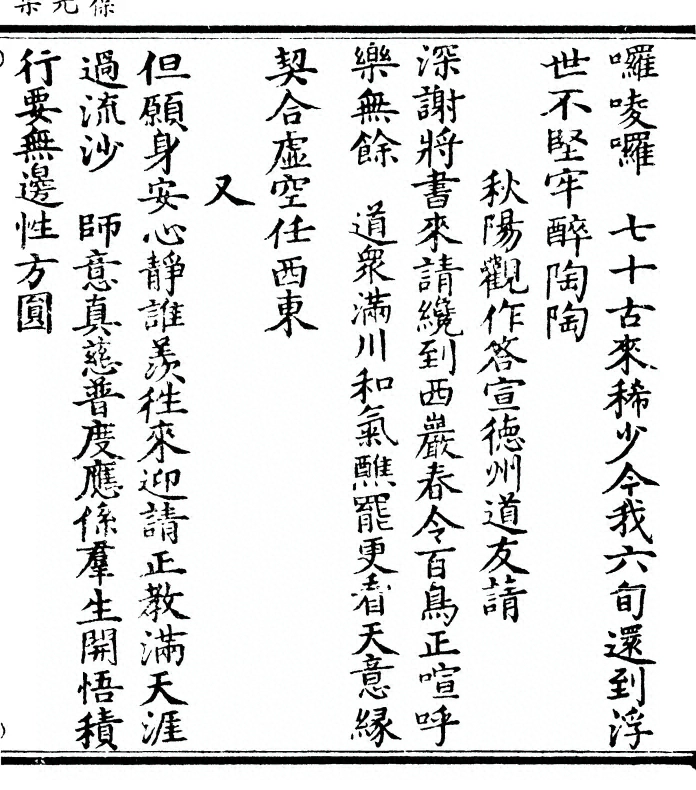 囉唛囉　七十古來稀少今我六旬還到浮
世不堅牢醉陶陶
秋陽觀作答宣德州道友請
深謝將書來請纔到西巖春令百鳥正喧呼
樂無餘　道衆滿川和氣醮罷更看天意緣
契合虛空任西東
又
但願身安心靜誰羨徃來迎請正教滿天涯
過流沙　師意真慈普度應係羣生開悟積
行要無邊性方圓